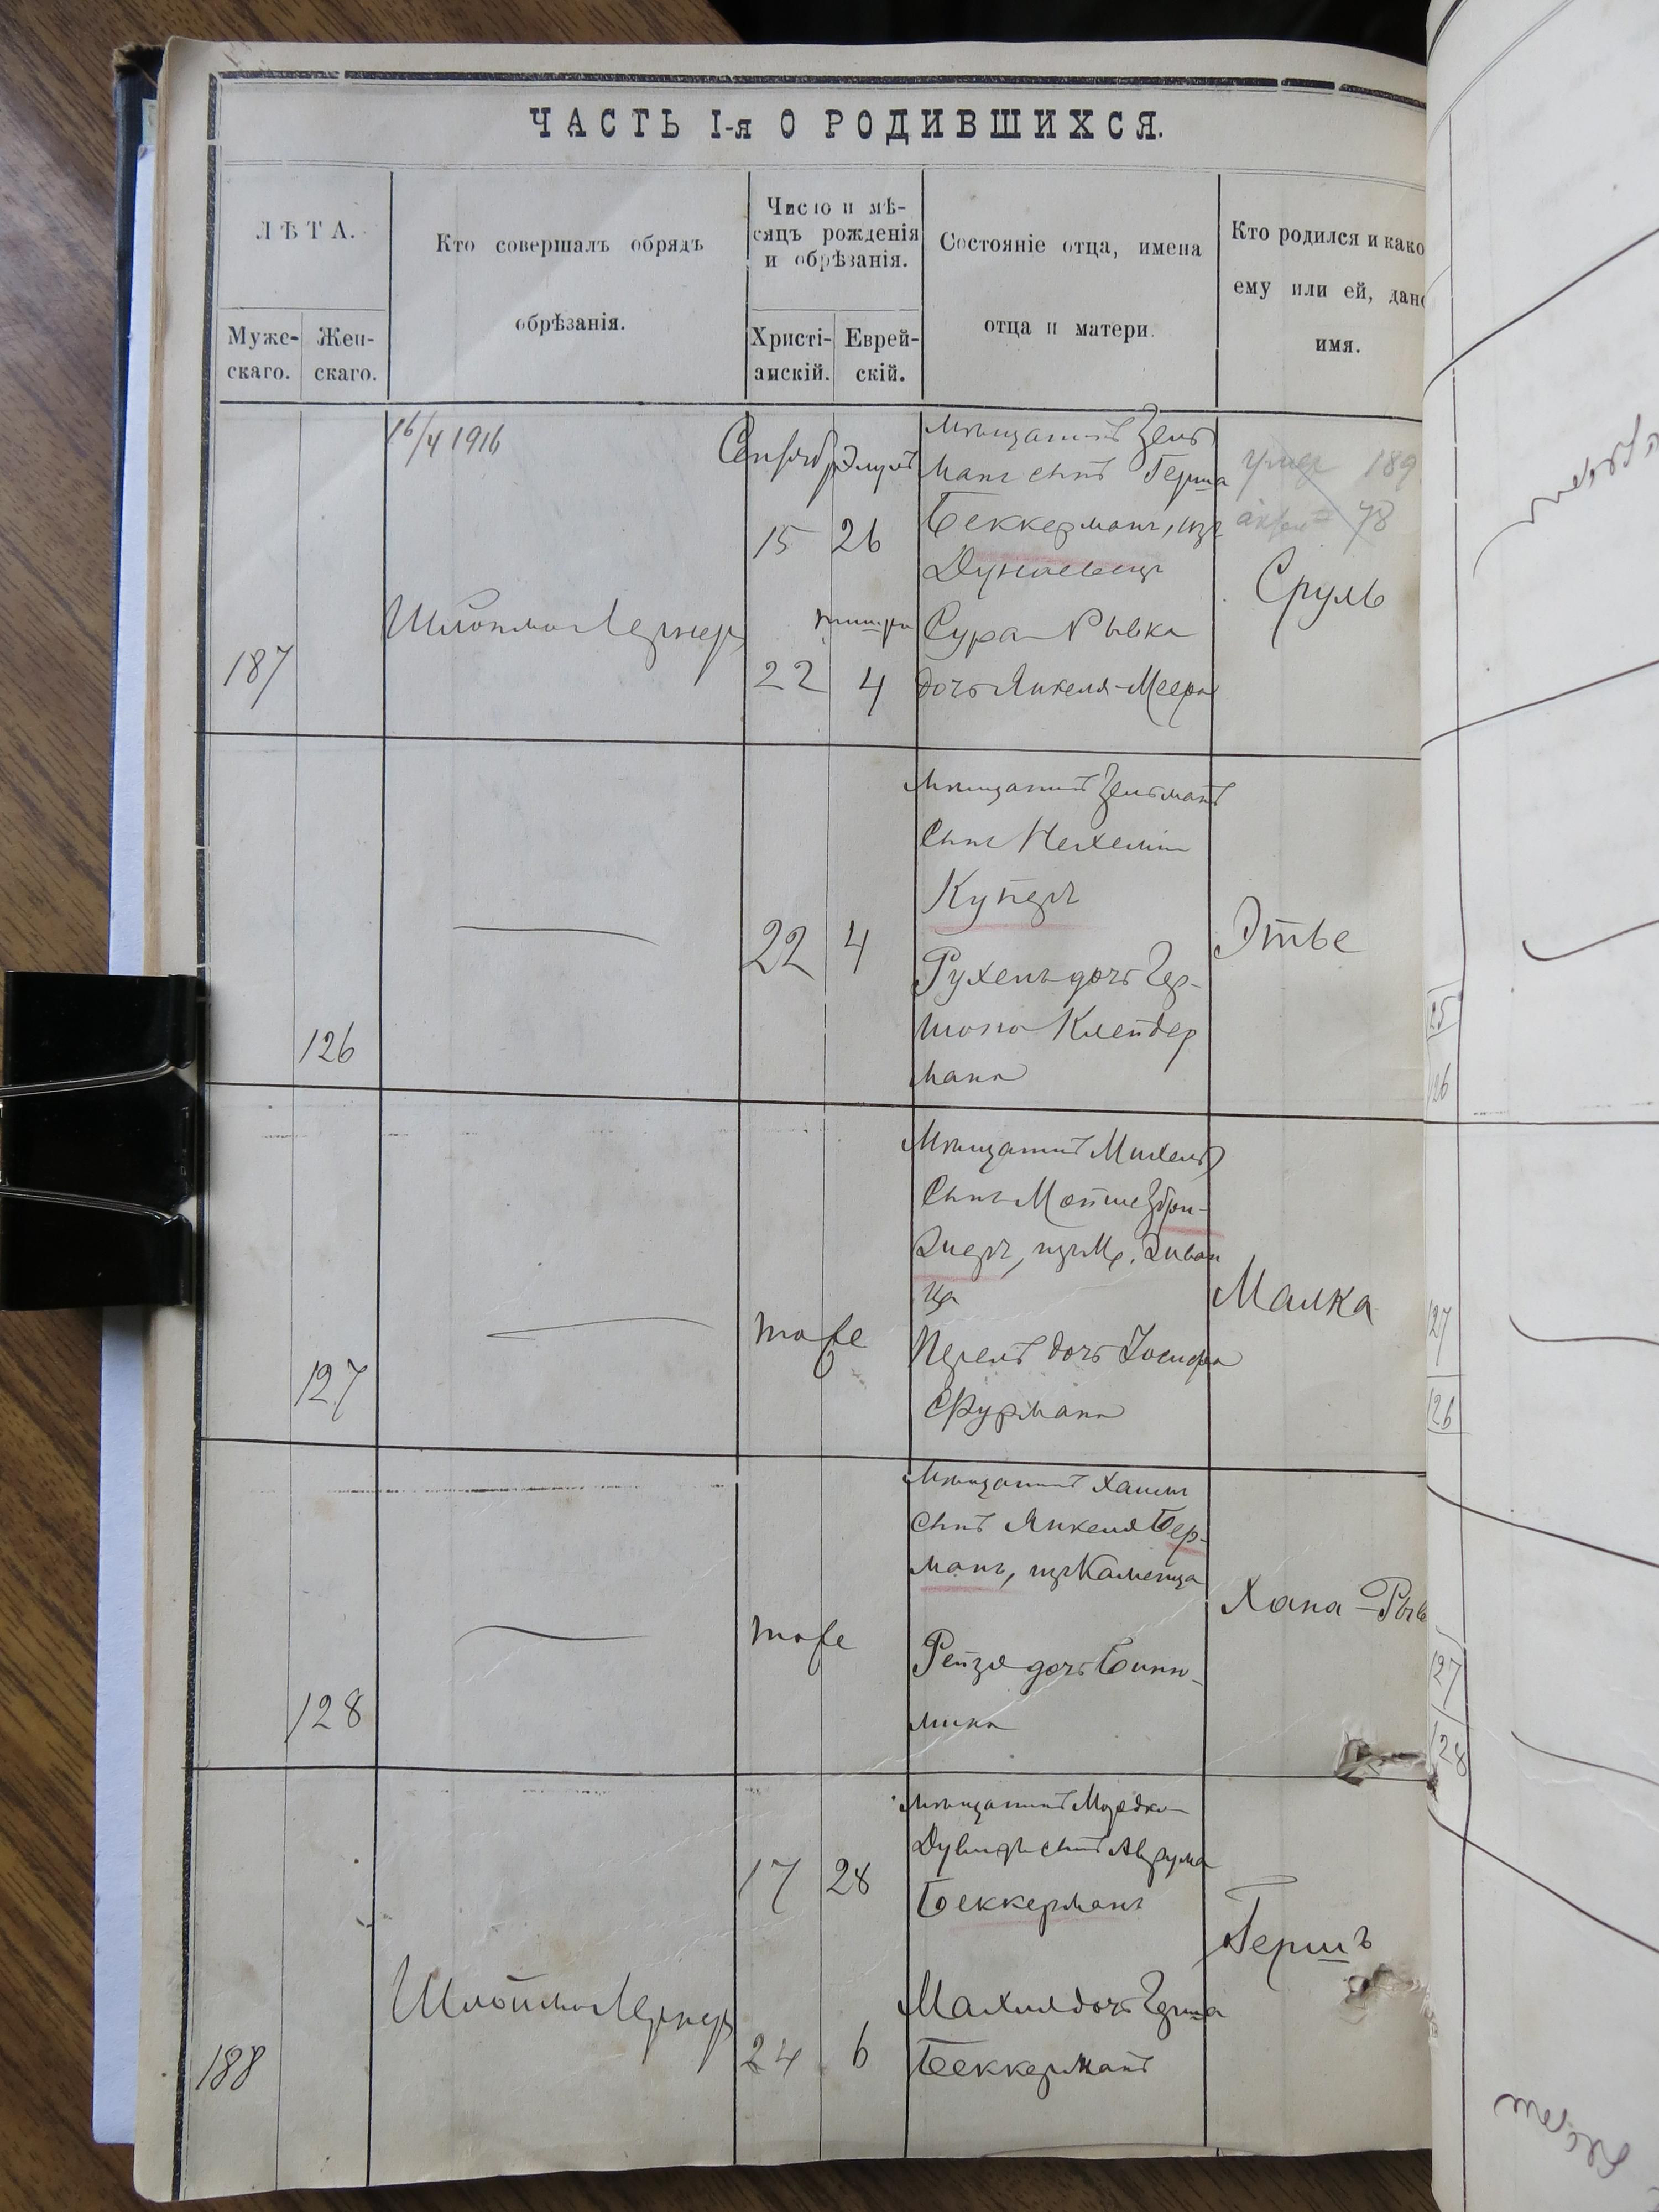 ЧАСТЬ I-я О РОДИВШИХСЯ.
ЛѢТА.
Муже-
скаго.
Жен-
скаго.
Кто совершалъ обрядъ
обрѣзанія.
Число и мѣ-
сяцъ рожденія
и обрѣзанія.
Христі-
анскій.
Еврей-
скій.
Состояніе отца, имена
отца и матери.
Кто родился и како
ему или ей, дано
имя.
187
16/4 1916
Шлойма Лернеръ
Сентябр
15
22
Элулъ
26
тишри
4
Мѣщанинъ Зель
манъ сынъ Герша
Беккерманъ, изъ
Дунаевецъ
Сура-Рывка
дочь Янкеля-Меера
189
78
Сруль
126
22
4
Мѣщанинъ Зельманъ
сынъ Нехеміи
Куперъ
Рухель дочь Гер-
шона Клейдер
мана
Этье
127
тоже
Мѣщанинъ Михель
сынъ Мойше Збри-
зеръ, изъ М. Зиван
ца
Перель дочь Іосифа
Фурмана
Малка
128
тоже
Мѣщанинъ Хаимъ
сынъ Янкеля Бер-
манъ, изъ Каменца
Рейзя дочь Бин-
мина
Хана-Рыв
188
Шлойма Лернеръ
17
24
28
6
Мѣщанинъ Мордко-
Дувидъ сынъ Аврума
Беккерманъ
Махля дочь Герша
Беккерманъ
Гершъ
25
26
127
126
127
128